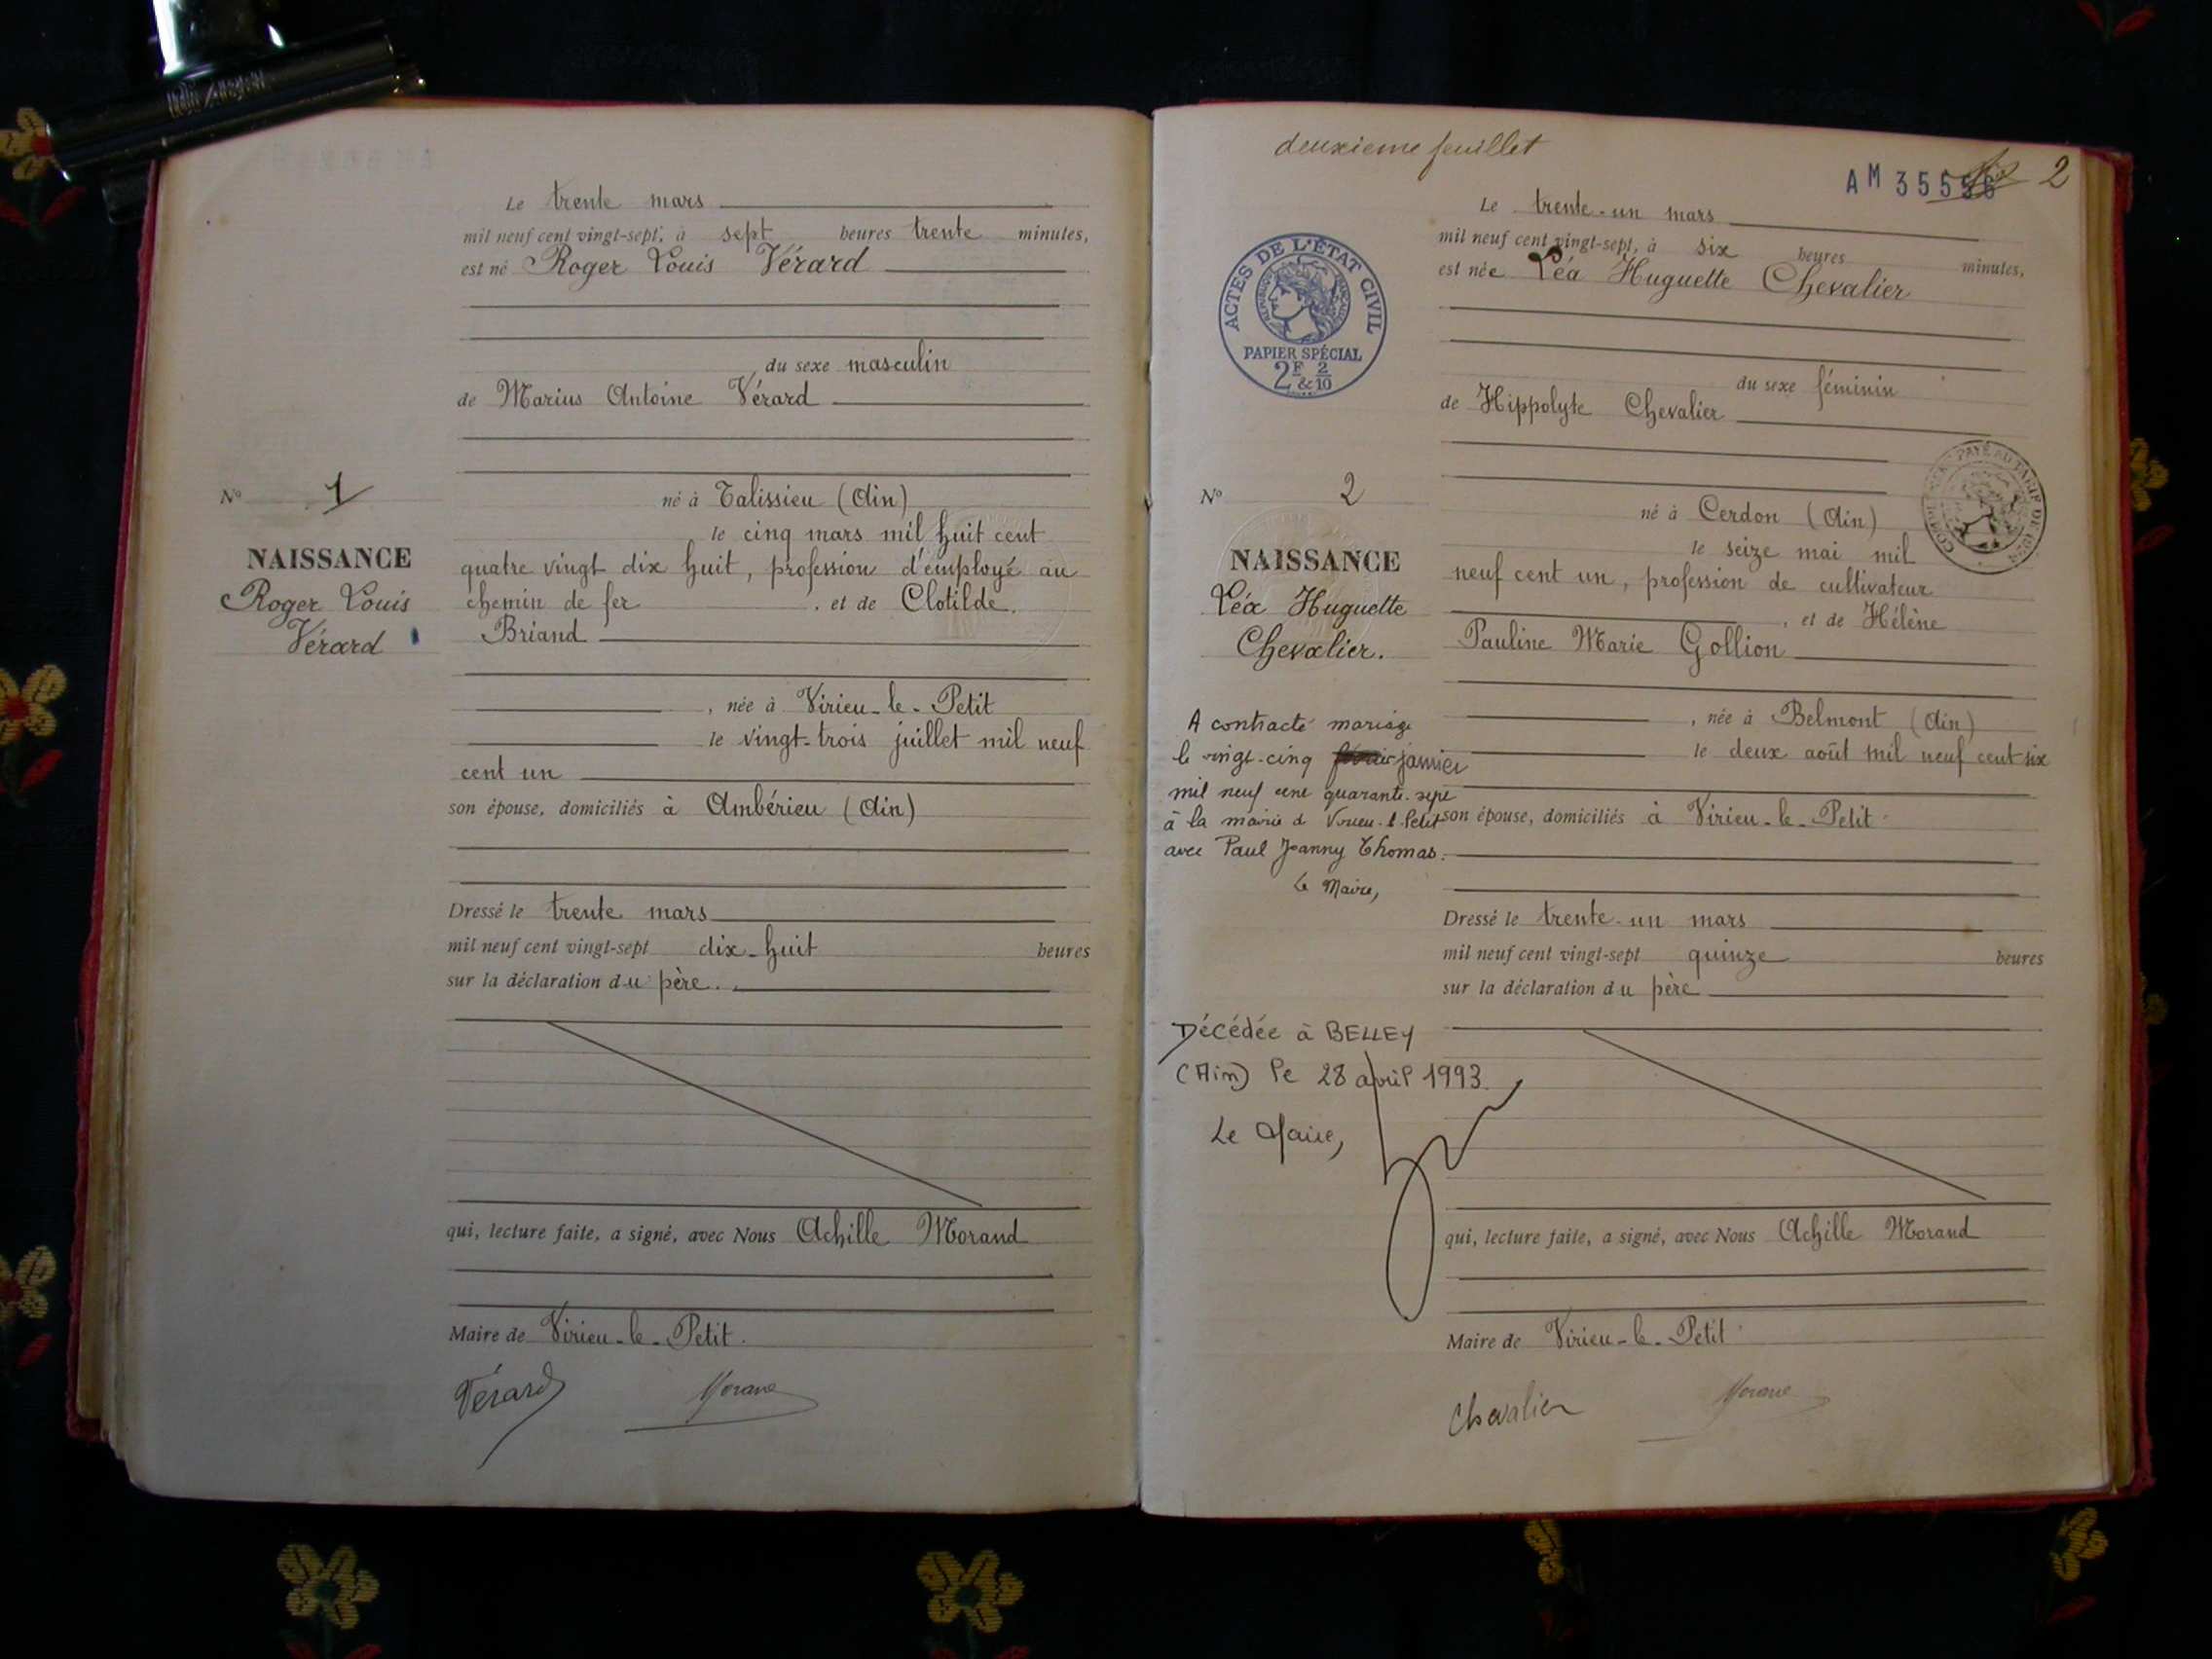 Le trente mars
mil neuf cent vingt-sept, à sept heures trente minutes,
est né Roger Louis Vérard
du sexe masculin
de Marius Antoine Vérard
né à Talissieu (Ain)
le cinq mars mil huit cent
quatre vingt dix huit, profession d'employé au
chemin de fer, et de Clotilde
Briand
, née à Virieu-le-Petit
le vingt-trois juillet mil neuf
cent un
son épouse, domiciliés à Ambérieu (Ain)
Dressé le trente mars
mil neuf cent vingt-sept dix-huit heures
sur la déclaration du père.
qui, lecture faite, a signé, avec Nous Achille Morand
Maire de Virieu-le-Petit.
Vérard Morand
N° 1
NAISSANCE
Roger Louis
Vérard
deuxieme feuillet
AM 35556 2
Le trente-un mars
mil neuf cent vingt-sept, à six heures minutes,
est née Léa Huguette Chevalier
du sexe féminin
de Hippolyte Chevalier
né à Cerdon (Ain)
le seize mai mil
neuf cent un, profession de cultivateur
, et de Hélène
Pauline Marie Gollion
, née à Belmont (Ain)
le deux août mil neuf cent six
son épouse, domiciliés à Virieu-le-Petit
Dressé le trente-un mars
mil neuf cent vingt-sept quinze heures
sur la déclaration du père
qui, lecture faite, a signé, avec Nous Achille Morand
Maire de Virieu-le-Petit
Chevalier Morand
ACTES DE L'ÉTAT CIVIL
RÉPUBLIQUE FRANÇAISE
PAPIER SPÉCIAL
2F & 2/10
N° 2
NAISSANCE
Léa Huguette
Chevalier.
A contracté mariage
le vingt-cinq janvier
mil neuf cent quarante-sept
à la mairie de Virieu-le-Petit
avec Paul Jeanny Thomas.
Le Maire,
Décédée à BELLEY
(Ain) le 28 avril 1993.
Le Maire,